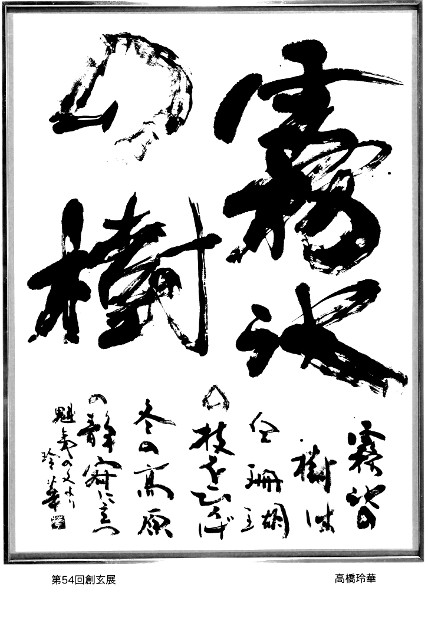 霧氷
の樹
霧氷の
樹は
白珊瑚
の枝をひろげ
冬の高原
の静寂に立つ
魁夷の文より
玲華
第54回創玄展
高橋玲華